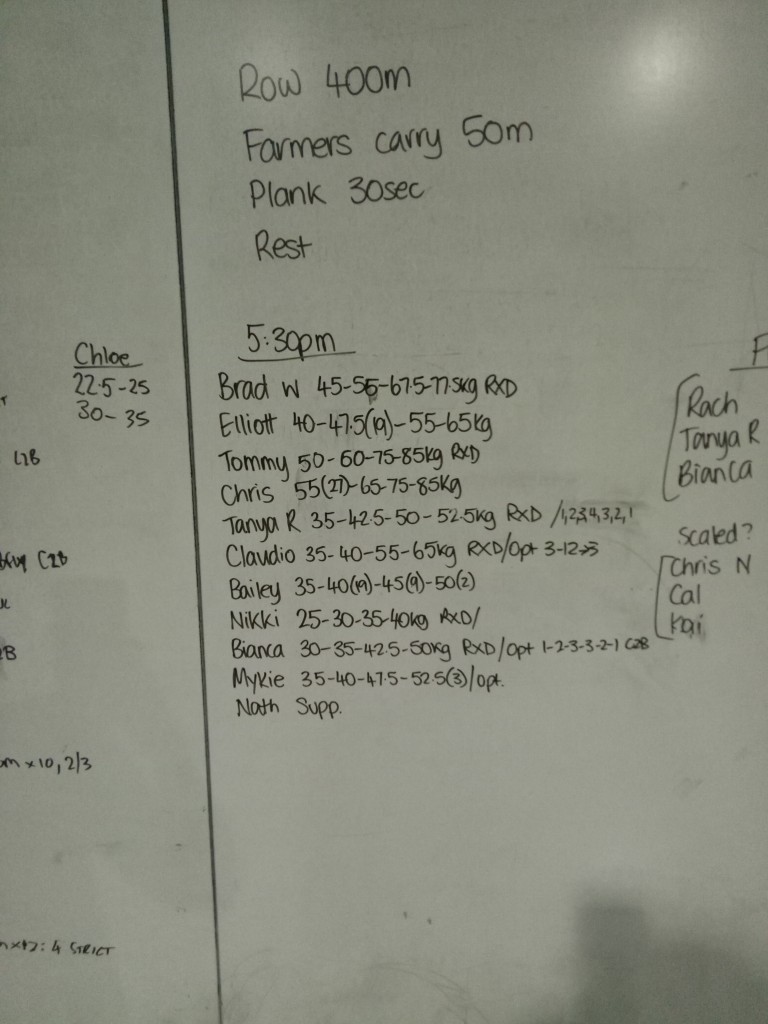 Row 400m
Farmers carry 50m
Plank 30sec
Rest
Chloe
22.5-25
30-35
L1B
C2B
m x 10, 2/3
: 4 STRICT
5:30pm
Brad W 45-55-67.5-77.5kg RXD
Elliott 40-47.5(19)-55-65kg
Tommy 50-60-75-85kg RXD
Chris 55(27)-65-75-85kg
Tanya R 35-42.5-50-52.5kg RXD /1,2,3,4,3,2,1
Claudio 35-40-55-65kg RXD/Opt 3-12→3
Bailey 35-40(19)-45(9)-50(2)
Nikki 25-30-35-40kg RXD/
Bianca 30-35-42.5-50kg RXD/Opt 1-2-3-3-2-1 C2B
Mykie 35-40-47.5-52.5(3)/opt.
Nath Supp.
Rach
Tanya R
Bianca
Scaled?
Chris N
Cal
Kai